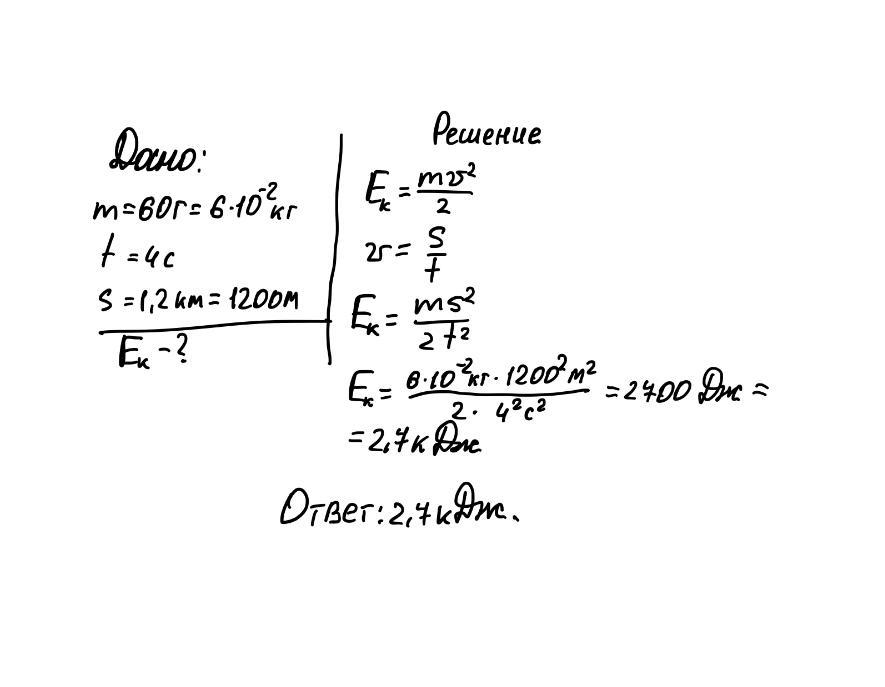 Дано:
m=60г=6·10⁻²кг
t=4с
S=1,2км=1200м
Eк-?
Решение
Eк=mv²/2
v=S/t
Eк=ms²/2t²
Eк=6·10⁻²кг·1200²м²/2·4²с²=2700Дж=
=2,7кДж
Ответ:2,7кДж.